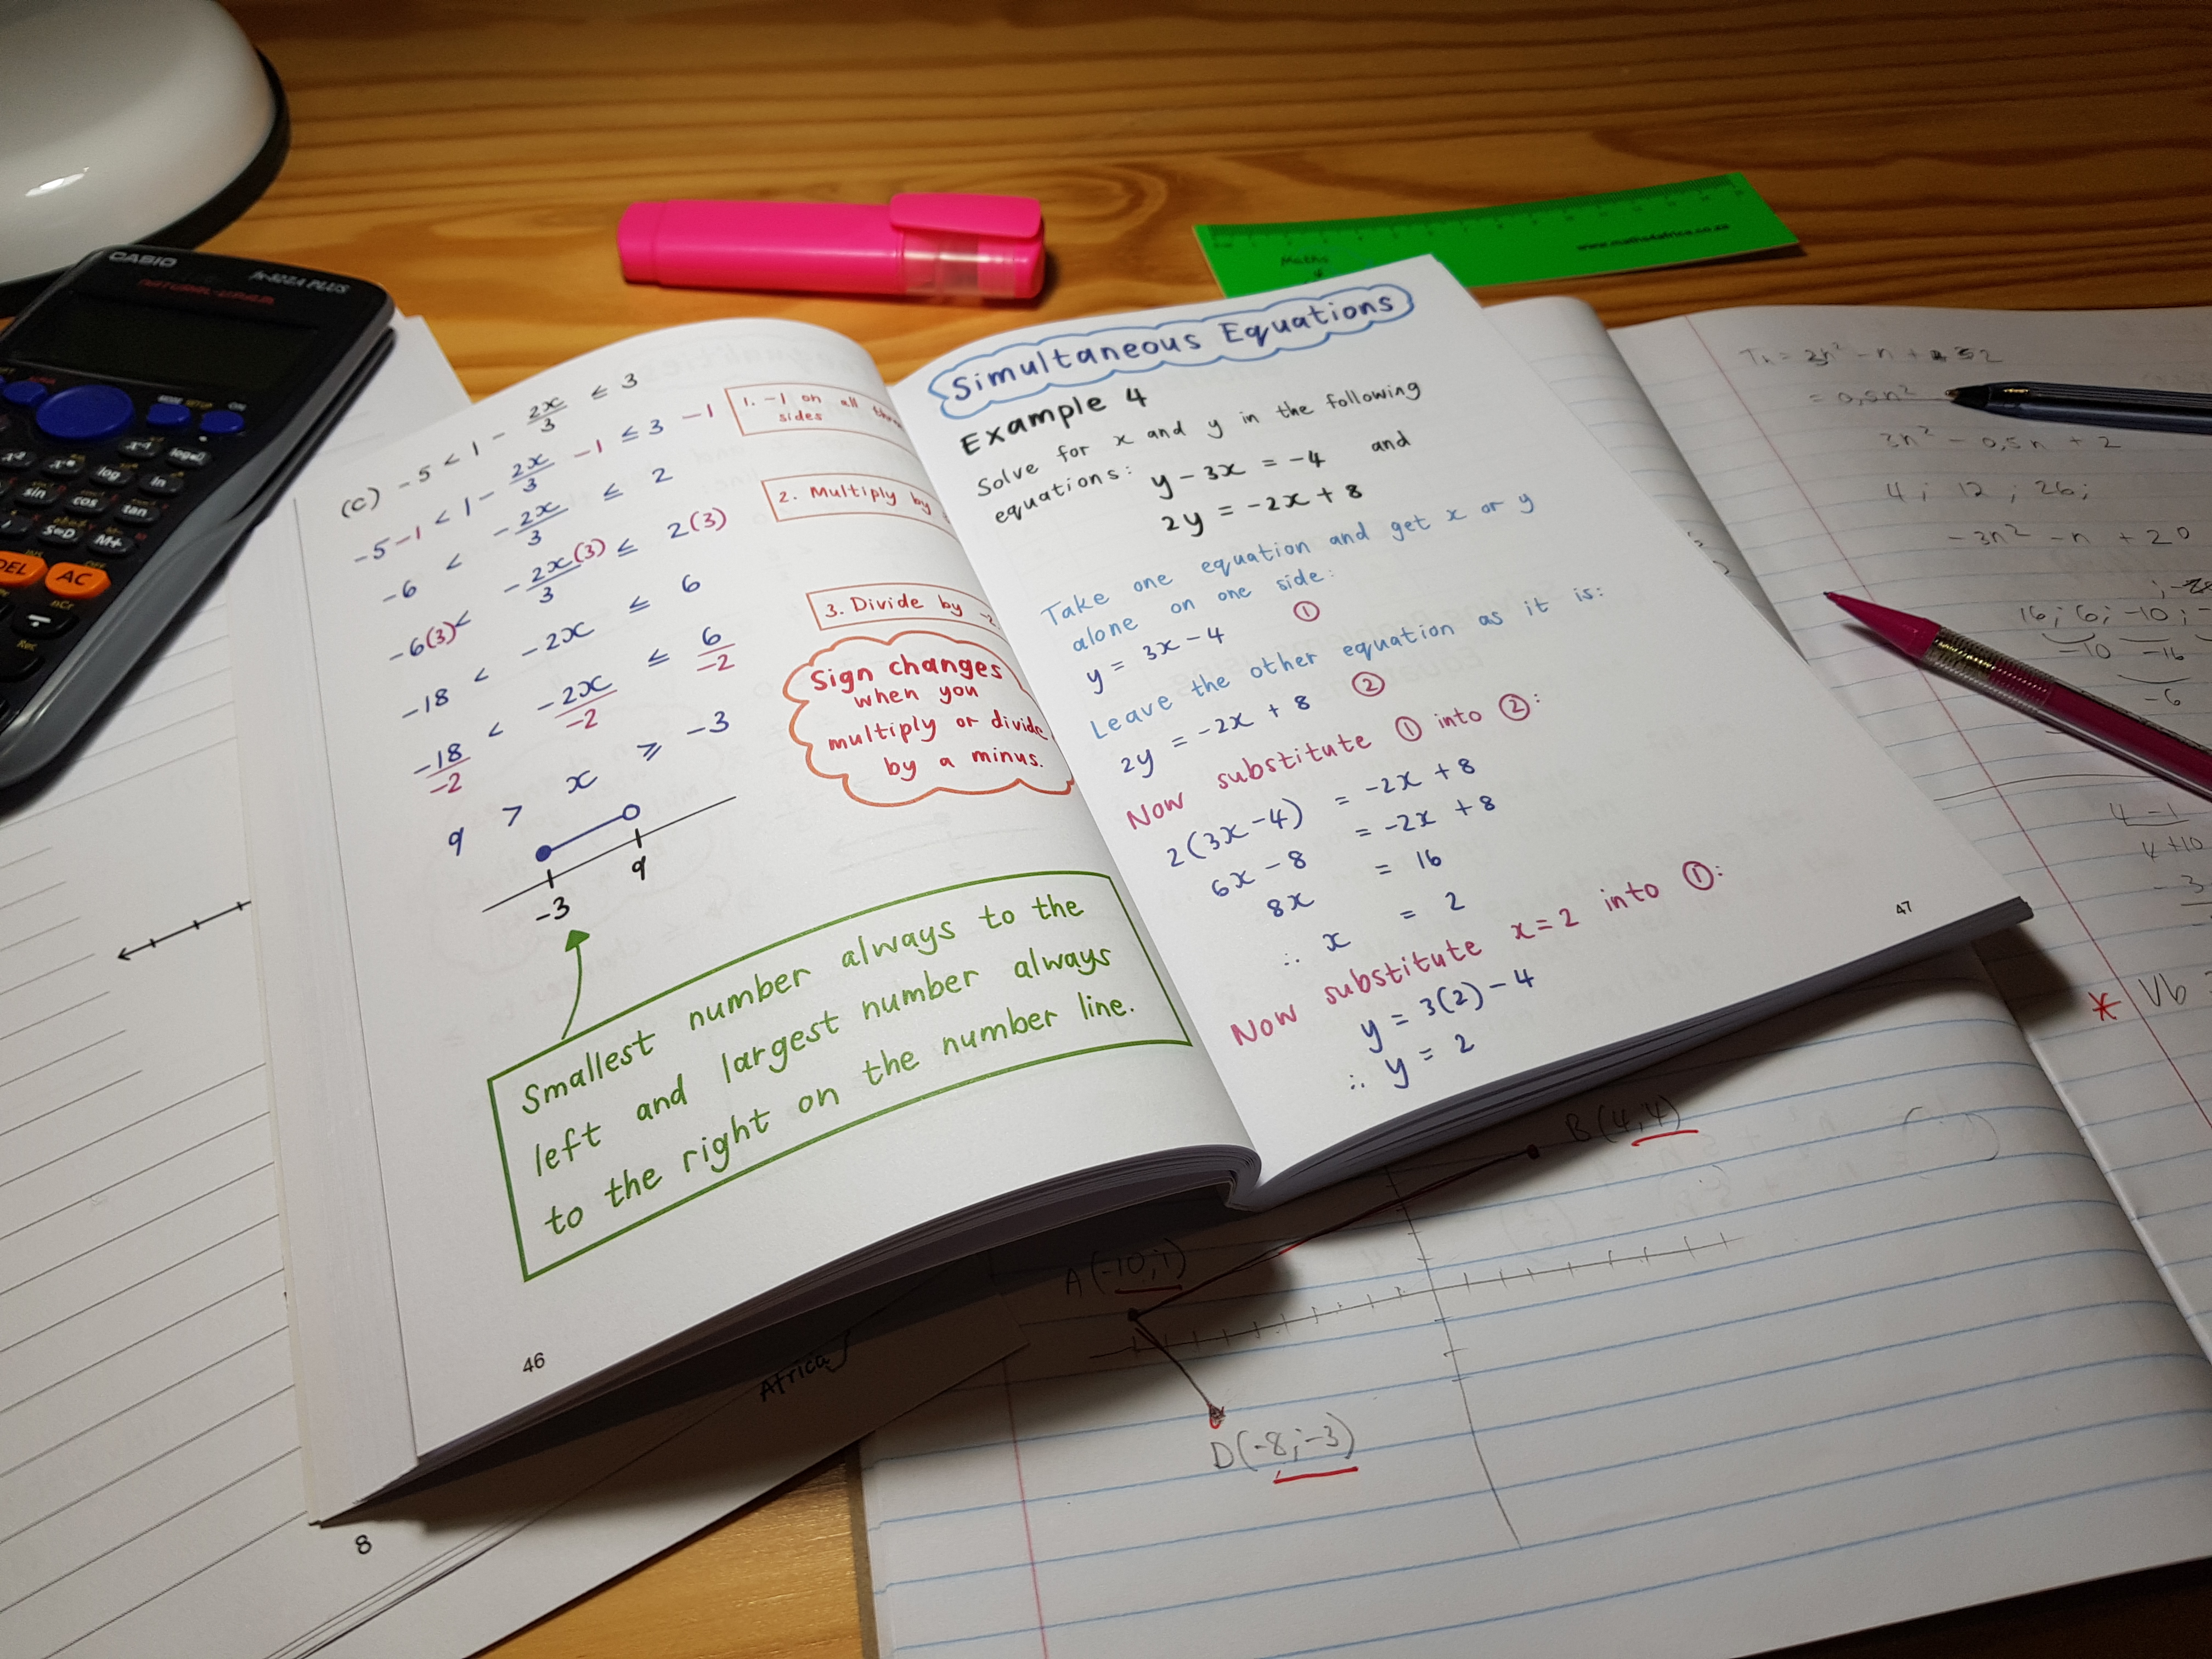 CASIO
fx-82ZA PLUS
NATURAL-V.P.A.M.
ON
log
ln
sin
cos
tan
S⇔D
M+
DEL
AC
nCr
(c) -5 < 1 - 2x/3 ≤ 3
-5 -1 < 1 - 2x/3 -1 ≤ 3 -1
-6 < -2x/3 ≤ 2
-6(3) < -2x/3 (3) ≤ 2(3)
-18 < -2x ≤ 6
-18/-2 < -2x/-2 ≤ 6/-2
9 > x ≥ -3
-3
9
1. -1 on all
sides
2. Multiply by
3. Divide by -2
Sign changes
when you
multiply or divide
by a minus.
Smallest number always to the
left and largest number always
to the right on the number line.
46
Simultaneous Equations
Example 4
Solve for x and y in the following
equations: y - 3x = -4 and
2y = -2x + 8
Take one equation and get x or y
alone on one side:
y = 3x - 4 ①
Leave the other equation as it is:
2y = -2x + 8 ②
Now substitute ① into ②:
2(3x - 4) = -2x + 8
6x - 8 = -2x + 8
8x = 16
∴ x = 2
Now substitute x = 2 into ①:
y = 3(2) - 4
∴ y = 2
47
Maths
www.maths4africa.co.za
3n² - 0,5n + 2
4; 12; 26;
-3n² - n + 20
16; 6; -10;
-10 -16
-6
4 - 1
4 + 10
* Vb
B(4;4)
A(-10;1)
D(-8;-3)
Africa
8